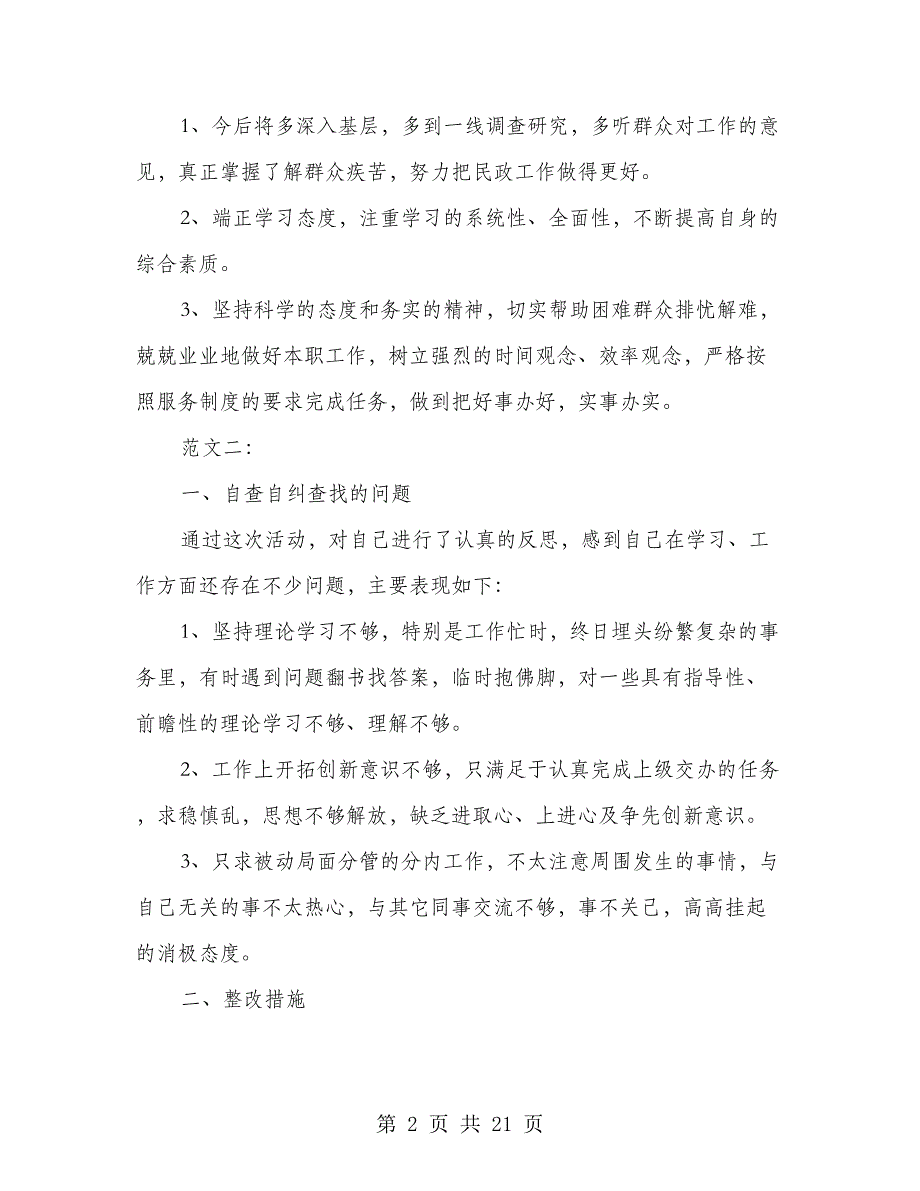 1、今后将多深入基层，多到一线调查研究，多听群众对工作的意
见，真正掌握了解群众疾苦，努力把民政工作做得更好。
2、端正学习态度，注重学习的系统性、全面性，不断提高自身的
综合素质。
3、坚持科学的态度和务实的精神，切实帮助困难群众排忧解难，
兢兢业业地做好本职工作，树立强烈的时间观念、效率观念，严格按
照服务制度的要求完成任务，做到把好事办好，实事办实。
范文二：
一、自查自纠查找的问题
通过这次活动，对自己进行了认真的反思，感到自己在学习、工
作方面还存在不少问题，主要表现如下：
1、坚持理论学习不够，特别是工作忙时，终日埋头纷繁复杂的事
务里，有时遇到问题翻书找答案，临时抱佛脚，对一些具有指导性、
前瞻性的理论学习不够、理解不够。
2、工作上开拓创新意识不够，只满足于认真完成上级交办的任务
，求稳慎乱，思想不够解放，缺乏进取心、上进心及争先创新意识。
3、只求被动局面分管的分内工作，不太注意周围发生的事情，与
自己无关的事不太热心，与其它同事交流不够，事不关己，高高挂起
的消极态度。
二、整改措施
第 2 页 共 21 页